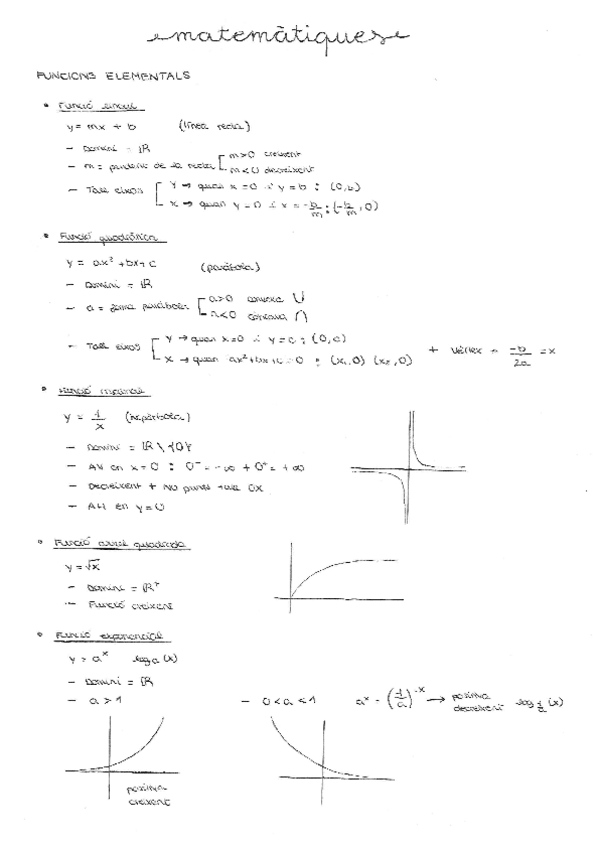 matemàtiques
FUNCIONS ELEMENTALS
• Funció lineal
y = mx + b (línea recta)
– Domini = ℝ
– m = pendent de la recta [ m>0 creixent
m<0 decreixent
– Talls eixos [ Y → quan x=0 i y=b : (0,b)
X → quan y=0 i x = -b/m : (-b/m, 0)
• Funció quadràtica
y = ax² + bx + c (paràbola)
– Domini = ℝ
– a = forma paràboles [ a>0 convexa ∪
a<0 còncava ∩
– Talls eixos [ Y → quan x=0 i y=c : (0,c)
X → quan ax²+bx+c=0 : (x₁,0) (x₂,0) + Vèrtex = -b/2a = x
• Funció racional
y = 1/x (hipèrbola)
– Domini = ℝ \ {0}
– AV en x=0 : 0⁻ = -∞ + 0⁺ = +∞
– Decreixent + NO punts tall OX
– AH en y=0
• Funció arrel quadrada
y = √x
– Domini = ℝ⁺
– Funció creixent
• Funció exponencial
y = aˣ log a (x)
– Domini = ℝ
– a > 1 – 0 < a < 1 aˣ = (1/a)⁻ˣ → positiva decreixent log 1/a (x)
positiva
creixent